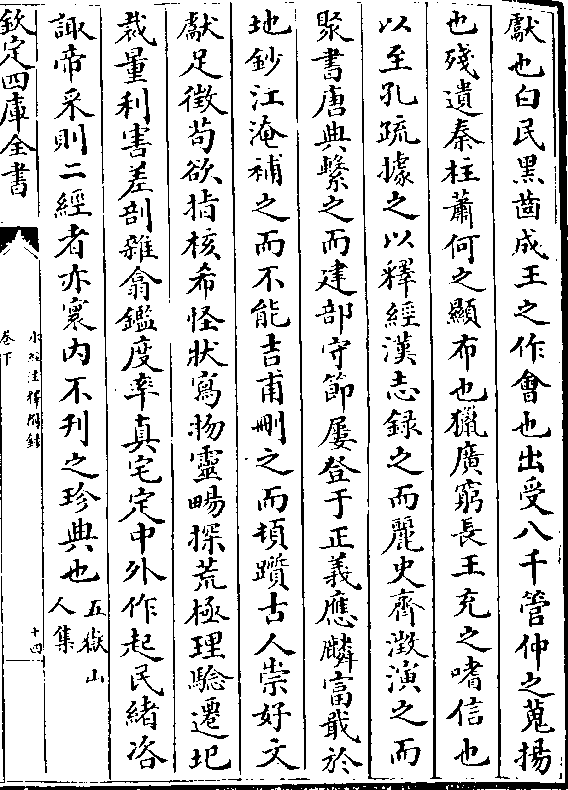 獻也白民黑齒成王之作會也出受八千管仲之蒐揚
也殘遺秦柱蕭何之顯布也獵廣窮長王充之嗜信也
以至孔疏據之以釋經漢志録之而麗史齊澂演之而
聚書唐典繫之而建部守節屢登于正義應麟富戢於
地鈔江淹補之而不能吉甫刪之而頓躓古人崇好文
獻足徴茍欲㨖核希怪狀寫物靈暢探荒極理騐遷圯
裁量利害差剖雜翕鑑度率真宅定中外作起民緒咨
諏帝采則二經者亦寰内不刋之珍典也五嶽山
人集
欽定四庫全書
水經注釋附錄
卷下
十四